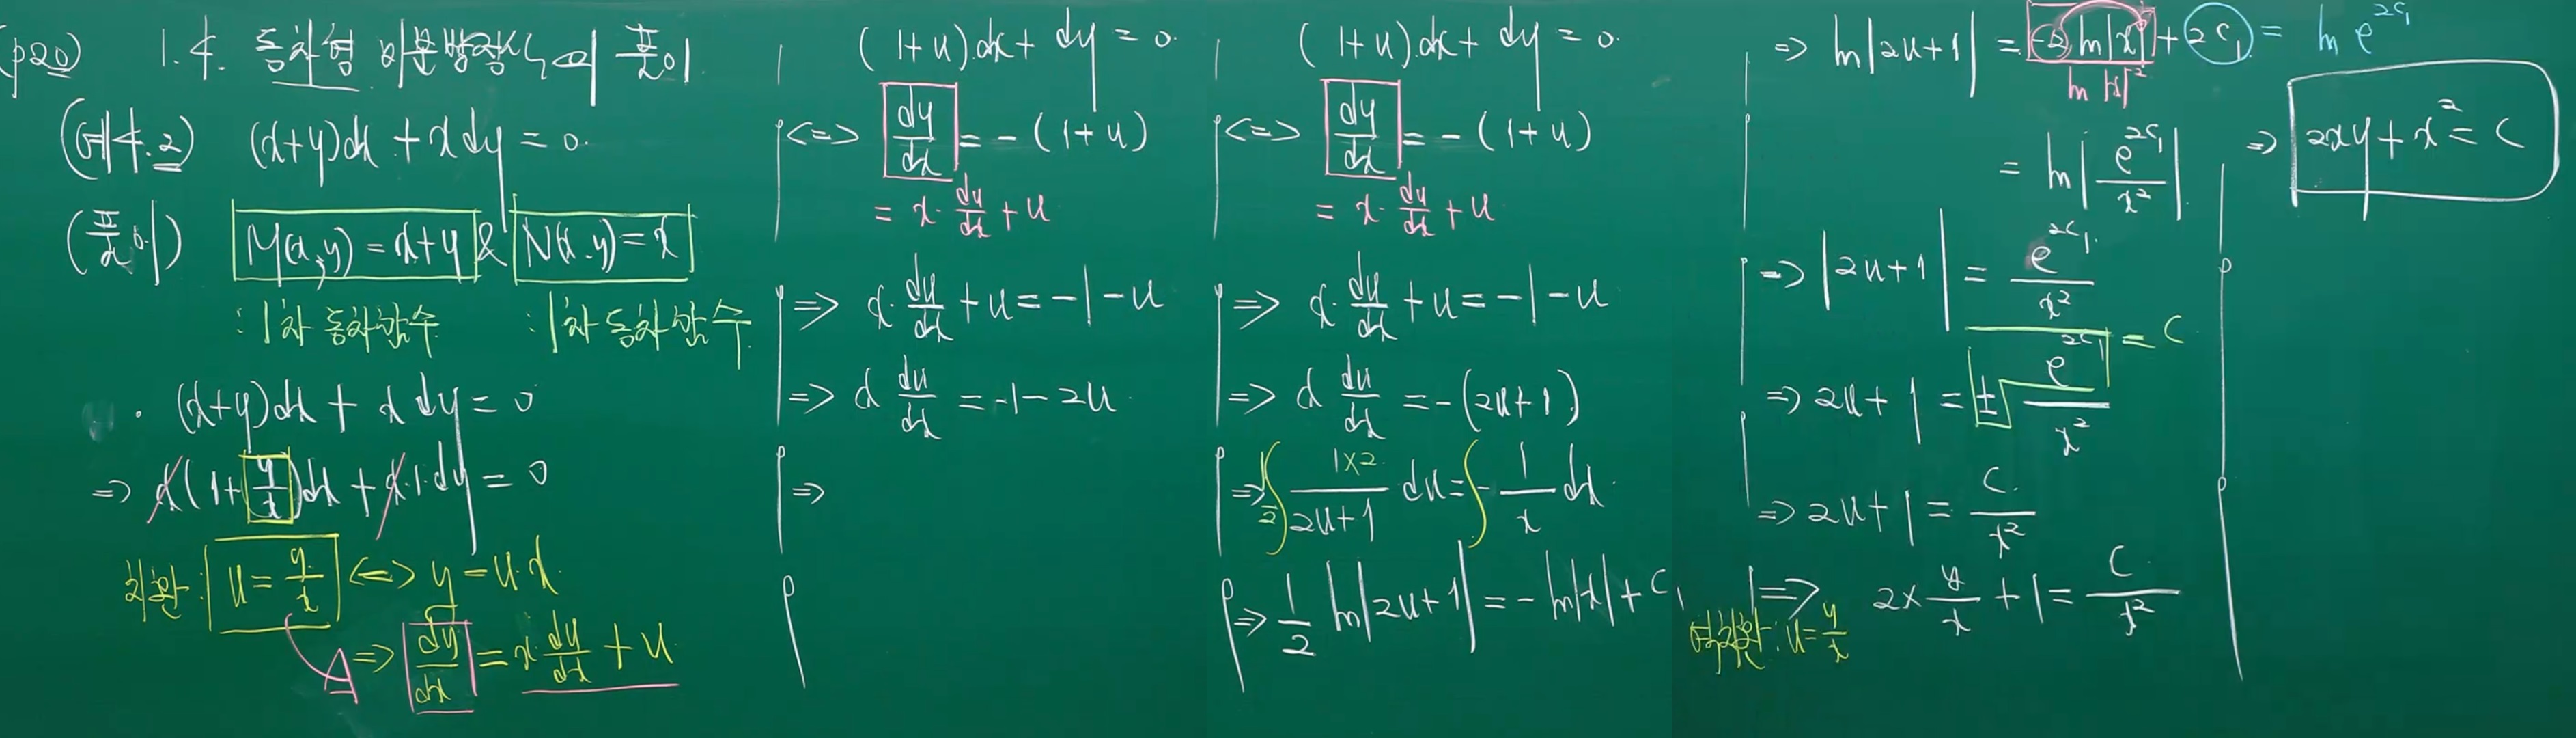 (p20) 1.4. 동차형 미분방정식의 풀이
(예4.2) (x+y)dx + x dy = 0.
(풀이) M(x,y) = x+y & N(x,y) = x
: 1차 동차함수 : 1차 동차함수
(x+y)dx + x dy = 0
=> x(1+y/x)dx + x·1·dy = 0
치환: u = y/x <=> y = u·x.
=> dy/dx = x·du/dx + u
(1+u)dx + dy = 0.
<=> dy/dx = -(1+u)
= x·du/dx + u
=> x·du/dx + u = -1-u
=> x du/dx = -1-2u.
=>
(1+u)dx + dy = 0.
<=> dy/dx = -(1+u)
= x·du/dx + u
=> x·du/dx + u = -1-u
=> x du/dx = -(2u+1)
=> 1/2 ∫ 1×2/(2u+1) du = ∫ -1/x dx.
=> 1/2 ln|2u+1| = -ln|x| + C₁
=> ln|2u+1| = -2 ln|x| + 2C₁ = ln e^(2C₁)
ln|x|^-2
= ln|e^(2C₁)/x²|
=> |2u+1| = e^(2C₁)/x²
=> 2u+1 = ± e^(2C₁)/x² = C
=> 2u+1 = C/x²
=> 2×y/x + 1 = C/x²
역치환: u = y/x
=> 2xy + x² = C